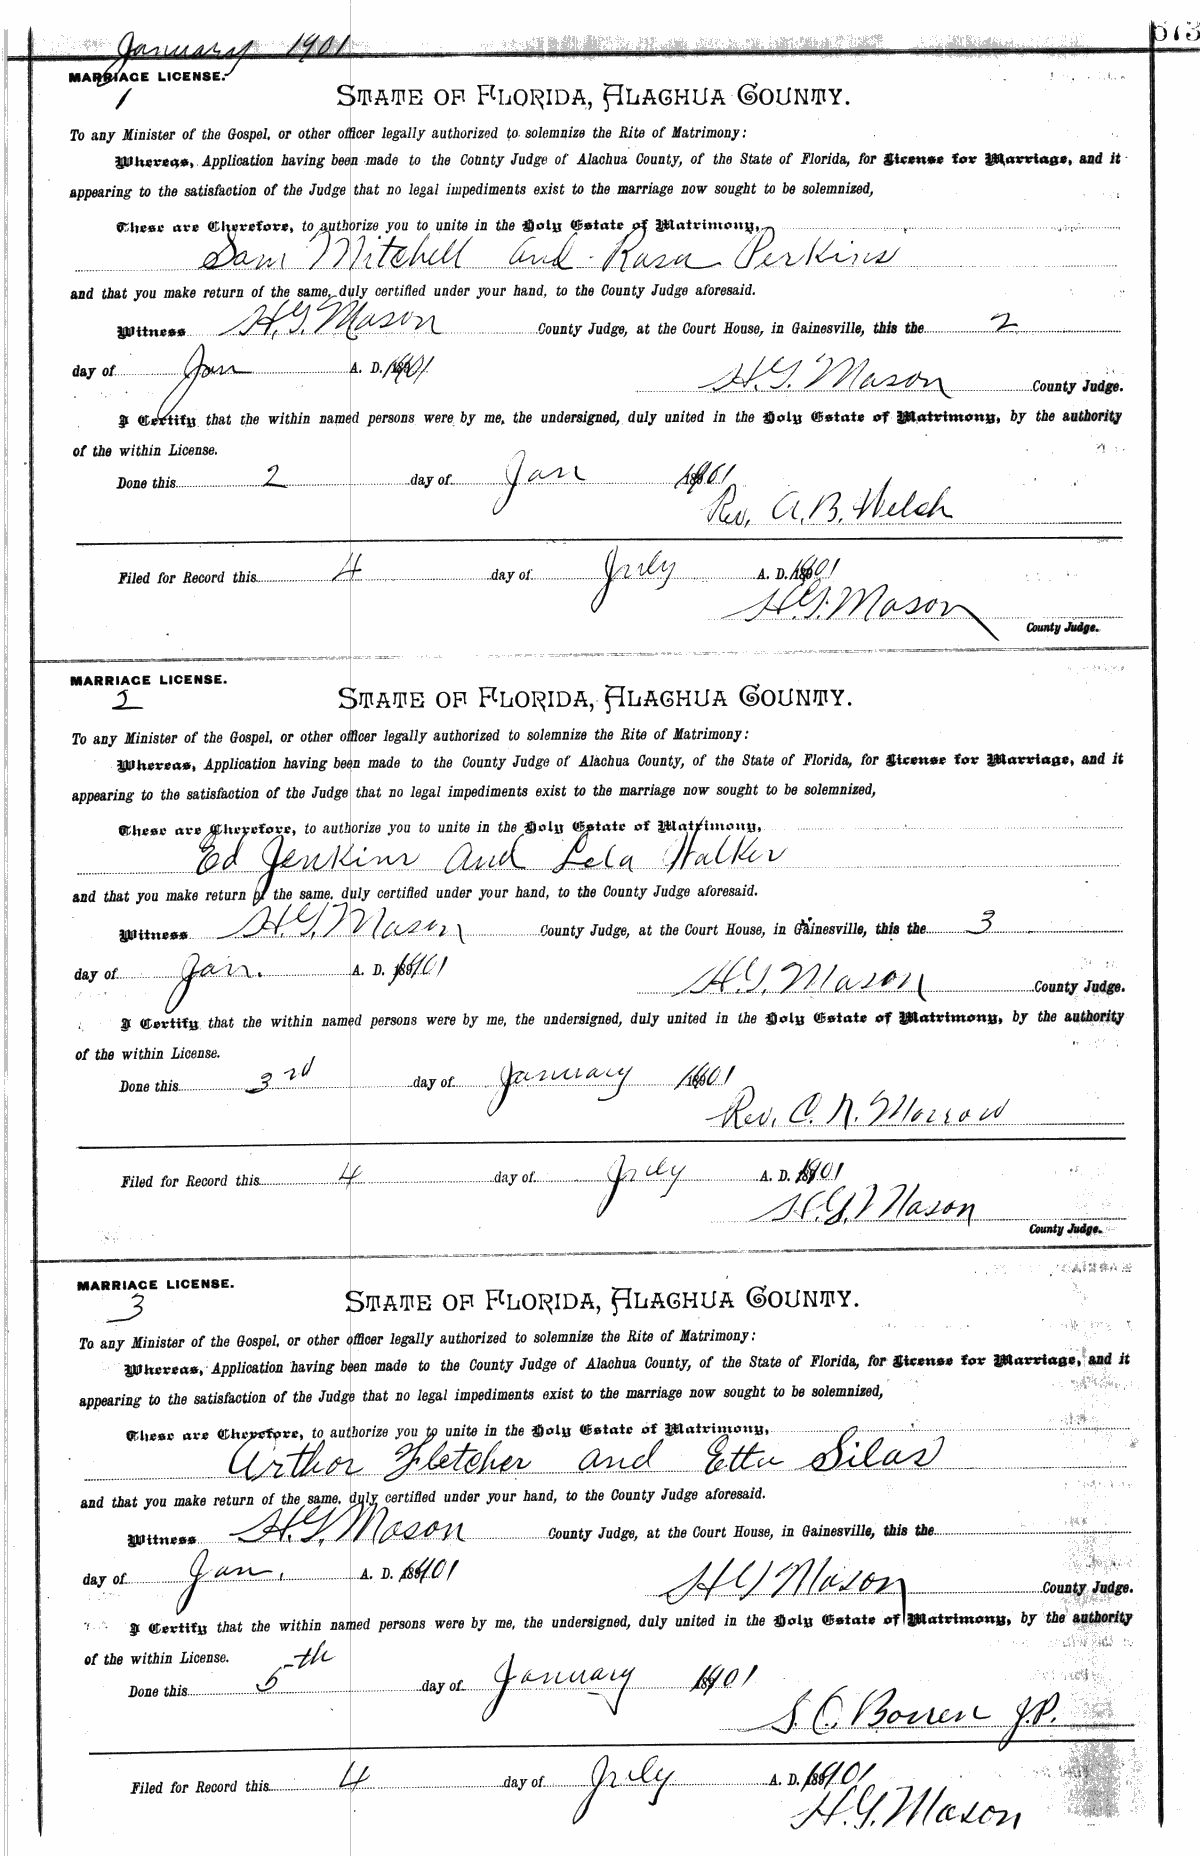 January 1901
573
MARRIAGE LICENSE.
1
STATE OF FLORIDA, ALACHUA COUNTY.
To any Minister of the Gospel, or other officer legally authorized to solemnize the Rite of Matrimony:
Whereas, Application having been made to the County Judge of Alachua County, of the State of Florida, for License for Marriage, and it
appearing to the satisfaction of the Judge that no legal impediments exist to the marriage now sought to be solemnized,
These are Therefore, to authorize you to unite in the Holy Estate of Matrimony,
Sam Mitchell and Rasa Perkins
and that you make return of the same, duly certified under your hand, to the County Judge aforesaid.
Witness H.G. Mason County Judge, at the Court House, in Gainesville, this the 2
day of Jan A. D. 1901 H.G. Mason County Judge.
I Certify that the within named persons were by me, the undersigned, duly united in the Holy Estate of Matrimony, by the authority
of the within License.
Done this 2 day of Jan 1901
Rev. A.B. Welch
Filed for Record this 4 day of July A. D. 1901
H.G. Mason
County Judge.
MARRIAGE LICENSE.
2
STATE OF FLORIDA, ALACHUA COUNTY.
To any Minister of the Gospel, or other officer legally authorized to solemnize the Rite of Matrimony:
Whereas, Application having been made to the County Judge of Alachua County, of the State of Florida, for License for Marriage, and it
appearing to the satisfaction of the Judge that no legal impediments exist to the marriage now sought to be solemnized,
These are Therefore, to authorize you to unite in the Holy Estate of Matrimony,
Ed Jenkins and Lela Walker
and that you make return of the same, duly certified under your hand, to the County Judge aforesaid.
Witness H.G. Mason County Judge, at the Court House, in Gainesville, this the 3
day of Jan. A. D. 1901 H.G. Mason County Judge.
I Certify that the within named persons were by me, the undersigned, duly united in the Holy Estate of Matrimony, by the authority
of the within License.
Done this 3rd day of January 1901
Rev. C. N. Morrow
Filed for Record this 4 day of July A. D. 1901
H.G. Mason
County Judge.
MARRIAGE LICENSE.
3
STATE OF FLORIDA, ALACHUA COUNTY.
To any Minister of the Gospel, or other officer legally authorized to solemnize the Rite of Matrimony:
Whereas, Application having been made to the County Judge of Alachua County, of the State of Florida, for License for Marriage, and it
appearing to the satisfaction of the Judge that no legal impediments exist to the marriage now sought to be solemnized,
These are Therefore, to authorize you to unite in the Holy Estate of Matrimony,
Arthor Fletcher and Etta Silas
and that you make return of the same, duly certified under your hand, to the County Judge aforesaid.
Witness H.G. Mason County Judge, at the Court House, in Gainesville, this the
day of Jan. A. D. 1901 H G Mason County Judge.
I Certify that the within named persons were by me, the undersigned, duly united in the Holy Estate of Matrimony, by the authority
of the within License.
Done this 5th day of January 1901
S. C. Boren J.P.
Filed for Record this 4 day of July A. D. 1901
H.G. Mason